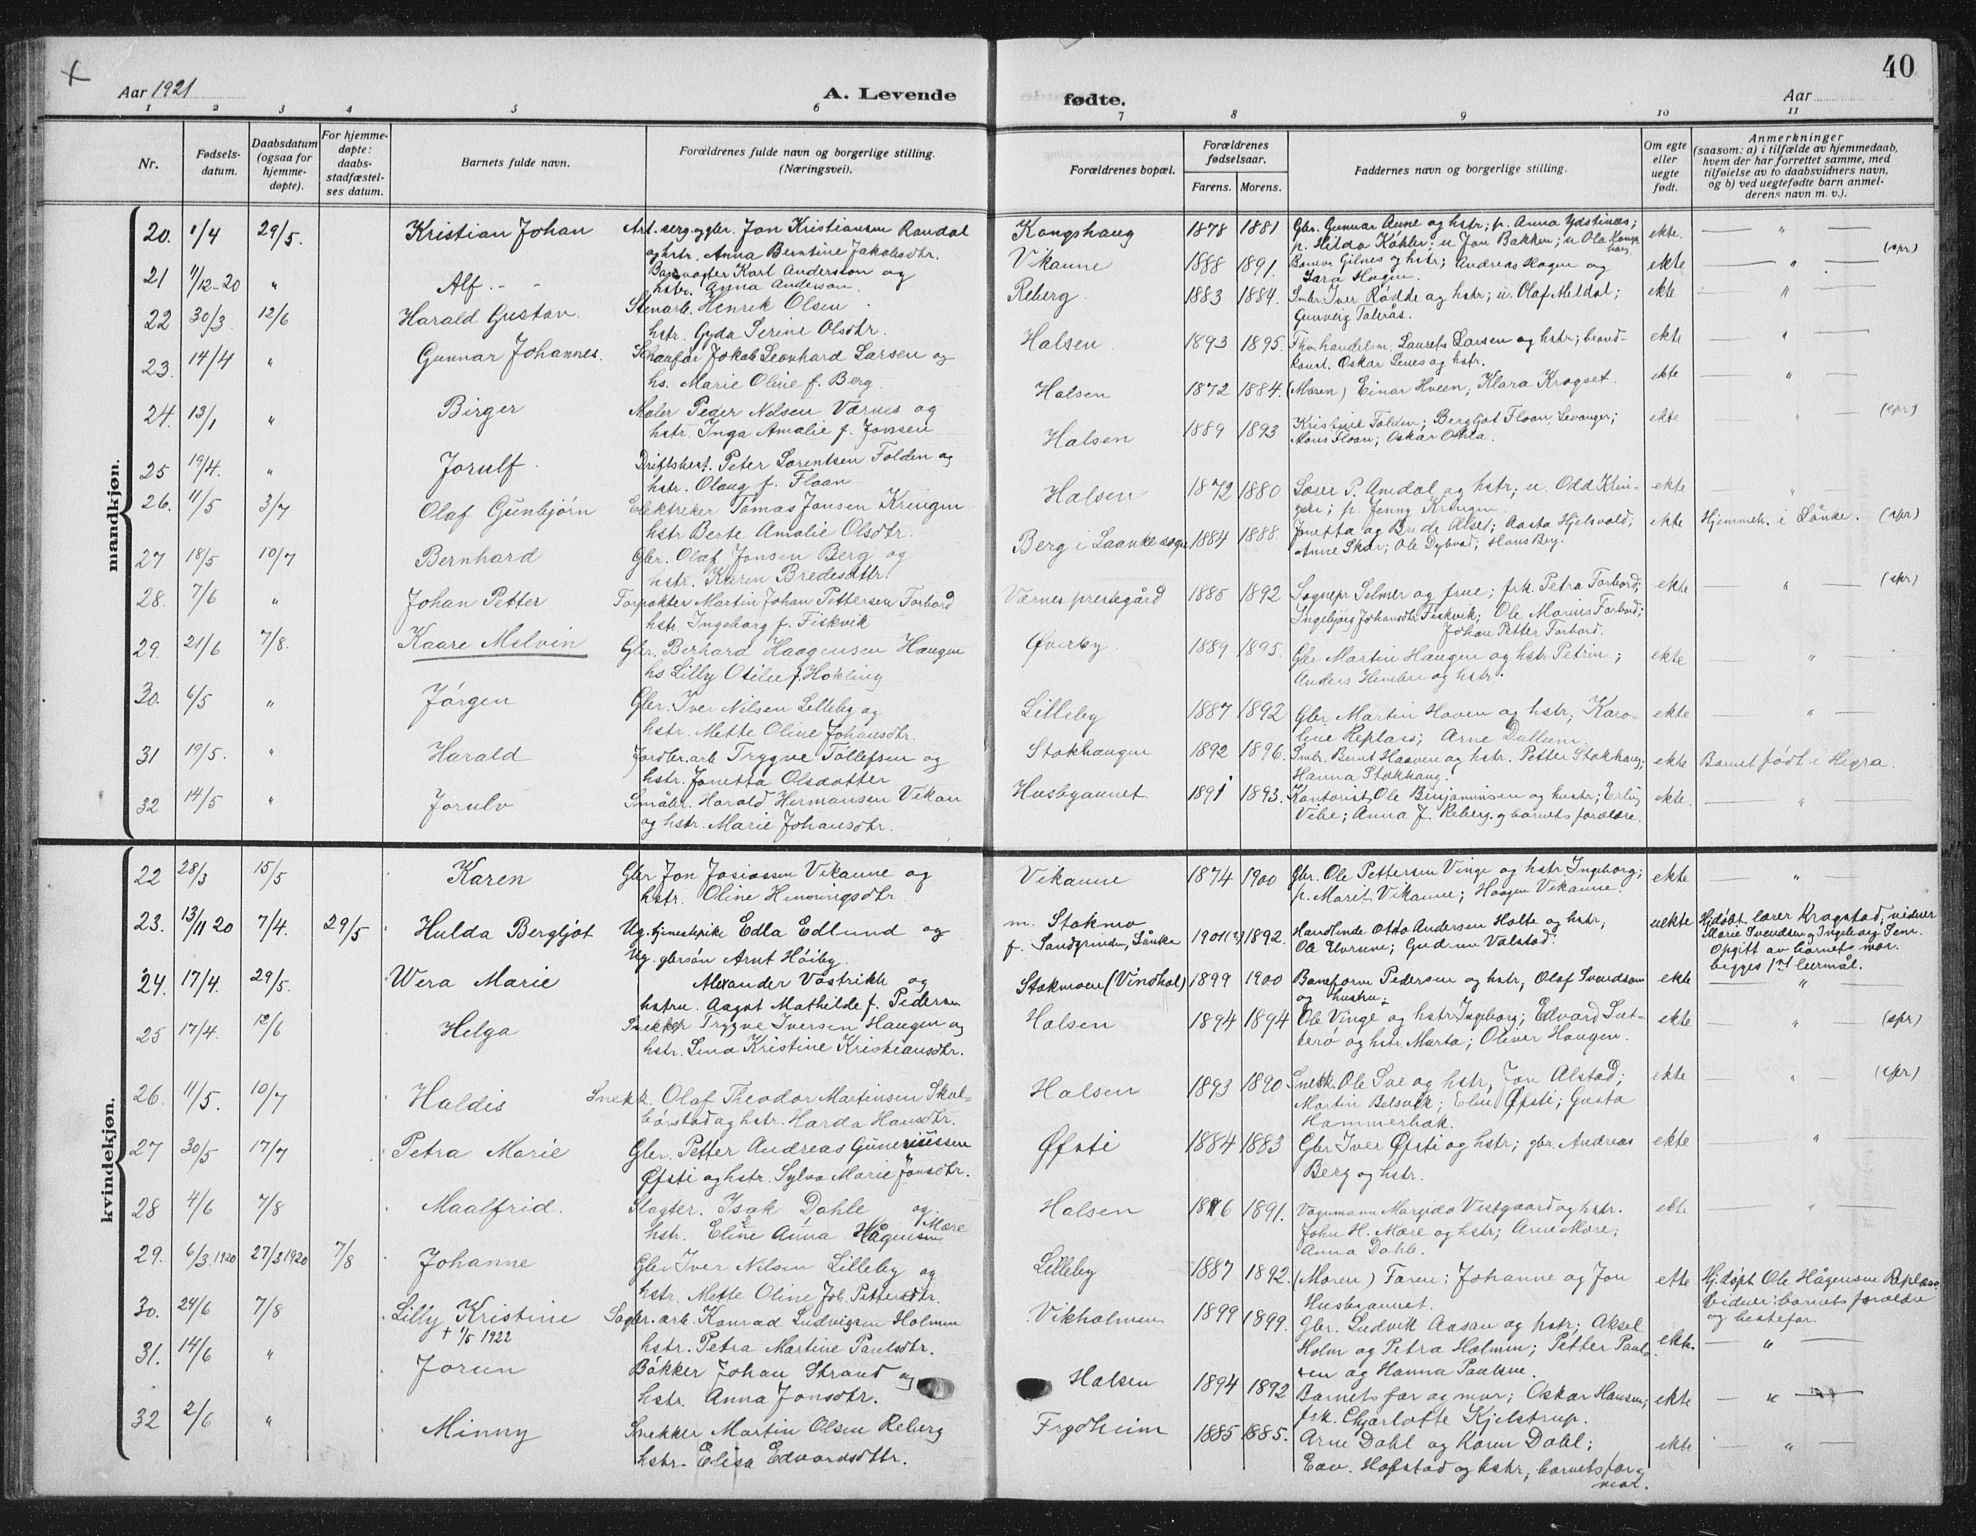 40
Aar 1921
A. Levende
fødte.
Aar
1 2 3 4 5 6 7 8 9 10 11
Nr.
Fødsels-
datum.
Daabsdatum
(ogsaa for
hjemme-
døpte).
For hjemme-
døpte:
daabs-
stadfæstel-
ses datum.
Barnets fulde navn.
Forældrenes fulde navn og borgerlige stilling.
(Næringsvei).
Forældrenes bopæl.
Forældrenes
fødselsaar.
Farens. Morens.
Faddernes navn og borgerlige stilling.
Om egte
eller
uegte
født.
Anmerkninger
(saasom: a) i tilfælde av hjemmedaab,
hvem der har forrettet samme, med
tilføielse av to daabsvidners navn,
og b) ved uegtefødte barn anmel-
derens navn m. v.).
mandkjøn.
20. 1/4 29/5. Kristian Johan Jon Kristiansen Randal Kongshaug 1878 1881 Gbr. Gunnar Aune og hstr; p. Anna Ydstines; ekte. "
og hstr. Anna Berntine Jakobsdtr. p. Hilda Køhler; u. Jon Bakken; u. Ola Kongshaug
21 11/12-20 " Alf. Banevogter Karl Anderson og Vikanne 1888 1891. Gilnes og hstr; Andreas Hagen og ekte " (spr)
hstr. Anna Anderson. Sara Hagen.
22 30/3. 12/6 Harald Gustav. Stenarb. Henrek Olsen Reberg. 1883 1884. Smbr. Iver Rødde og hstr; u. Olaf Meldal; ekte "
hstr. Gyda Serine Olsdtr. Gunveig Talerås.
23. 14/4 " Gunnar Johannes. Schaufør Jakob Leonhard Larsen og Halsen 1893 1895. Laurets Larsen og hstr; brand- ekte "
hs. Marie Oline f. Berg. konst. Oskar Lenes og hstr.
24. 13/1 " Birger Maler Peder Nelsen Værnes og Halsen 1872 1884. (Moren) Einar Hveen, Klara Krogset. ekte "
hstr. Inga Amalie f. Jonsen
25 19/4. " Jorulf. Driftsbest. Peter Lorentsen Folden og Halsen 1889 1893 Kristine Folden; Bergljot Floan, Levanger; ekte " (spr)
hstr. Olaug f. Floan Mons Floan; Oskar
26. 11/5 3/7 Olaf Gunbjørn Elektreker Tomas Jansen Kringen Halsen 1872 1880 P. Amdal og hstr; u. Odd Krin- ekte "
hstr Berte Amalie Olsdtr. gen; p. Jenny Kringen.
27 18/5 10/7 Bernhard Gbr. Olaf Jonsen Berg og Berg i Laanke sogn 1884 1888 Jonetta og Aasta Hjelsvold; ekte Hjemmeh. i Lånke. (spr)
hstr. Karen Bredesdtr. Anne Skar; Ole Dybvad; Hans Berg.
28. 7/6 " Johan Petter Forpakter Martin Johan Pettersen Forbord Værnes prestegård 1885 1892 Sognepr. Selmer og frue; frk. Petra Forbord; ekte " (spr)
hstr Ingeborg f. Fiskvik Ingebjørg Johansdtr Fiskvik; Ole Marius Forbord;
Johan Petter Forbord.
29. 21/6 7/8. Kaare Melvin Gbr. Berhard Haagensen Haugen Øverby. 1889 1895. Gbr Martin Haugen og hstr Petrin; ekte "
hs Lilly Otilie f. Hokling Anders Hembre og hstr.
30. 6/5 " Jørgen Gbr. Iver Nilsen Lilleby og Lilleby 1887 1892 Gbr. Martin Hoven og hstr; Karo- ekte "
hstr. Mette Oline Johansdtr. line Replass; Arne Dullum.
31 19/5. " Harald Jordbr. arb Trygve Tollefsen og Stokhaugen 1892 1896. Smbr. Bernt Haaven og hstr. Petter Stokhaug; ekte Barnet født i Hegra.
hstr. Jonetta Olsdatter Hanna Stokhaug.
32 14/5 " Jorulv Småbr. Harald Hermansen Vikan Husbyaunet 1891 1893. Kontorist Ole Benjaminsen og hustr; Erling ekte "
og hstr. Marie Johansdtr. Vibe; Anna J. Reberg. og barnets forældre.
kvindekjøn.
22 28/3 15/5 Karen Gbr Jon Josiassen Vikanne og Vikanne 1874 1900 Gbr. Ole Pettersen Vinge og hstr Ingeborg; ekte "
hstr. Oline Henningsdtr p. Marit Vikanne; Haagen Vikanne.
23. 13/11 20 7/4. 29/5 Hulda Bergljót Ug. tjenestepike Edla Edlund og m. Stokmo 1901(?) 1892. Handlende Otto Andersen Holte og hstr; uekte Hjdøbt lærer Kragstad, vidner
Ug. gbrsøn Arnt Høiby. f. Sandgrinden, Lånke Ole Uvrune; Gudrun Valstad. Marie Svendsen og Ingeborg Sem.
Opgitt av barnets mor.
begges 1ste leiermål.
24. 17/4. 29/5. Wera Marie Alexander Vostrikh og Stokmoen (Vindhol) 1899 1900 Baneform Pedersen og hstr, Olaf Svendsen ekte "
hstru. Aagot Mathilde f. Pedersen og hustru.
25 17/4. 12/6 Helga Snekker Trygve Iversen Haugen og Halsen 1894 1894 Ole Vinge og hstr Ingeborg; Edvard Sut- ekte " (spr)
hstr. Lena Kristine Kristiansdtr. terø og hstr. Marta; Oliver Haugen.
26. 11/5. 10/7 Haldis Snekk. Olaf Theodor Martinsen Skol- Halsen 1893 1890 Snekk. Ole Sve og hstr, Jon Alstad; ekte " (spr)
børstad og hstr. Harda Hansdtr. Martin Belsvik; Elin Øfsti; Gusta
Hammerbak.
27 30/5 17/7 Petra Marie Gbr. Petter Andreas Guneriussen Øfsti 1884 1883 Gbr Iver Øfsti og hstr; gbr. Andreas ekte "
Øfsti og hstr. Sylva Marie Jonsdtr. Berg og hstr.
28 4/6 7/8 Maalfrid. Slagter. Isak Dahle og Halsen 1876 1891. Vognmann Margido Vestgaard og hstr. ekte "
hstr. Eline Anna Hågensen Mære John H. Mære og hstr; Arne Mære;
Anna Dahle.
29. 6/3 1920 27/3 1920 7/8 Johanne Gbr Iver Nilsen Lilleby og Lilleby 1887 1892. (Moren) Faren; Johanne og Jon ekte Hj. døpt Ole Hågensen Replass.
hstr. Mette Oline Joh. Pettersdtr. Husbyaunet. Vidner: barnets forældre
og bestefar.
30. 24/6 7/8 Lilly Kristine Sagbr. arb. Konrad Ludvigsen Holmen Vikholmen 1899 1899. Gbr. Ludvik Aasan og hstr; Aksel ekte. "
+ 1/5 1922 hstr. Petra Martine Paulsdtr. Holm og Petra Holmen; Petter Paul-
sen og Hanna Paulsen.
31. 14/6 " Jorun Bakker Johan Strand og Halsen 1894 1892 Barnets far og mor; Oskar Hansen; ekte "
hstr. Anna Jonsdtr. frk. Charlotte Kjelstrup.
32 2/6 " Minny Snekker Martin Olsen Reberg Frydheim 1885 1885. Arne Dahl og Karen Dahl; ekte "
hstr. Elisa Edvardsdtr. Edv. Hofstad og hstr, barnets far og
mor.